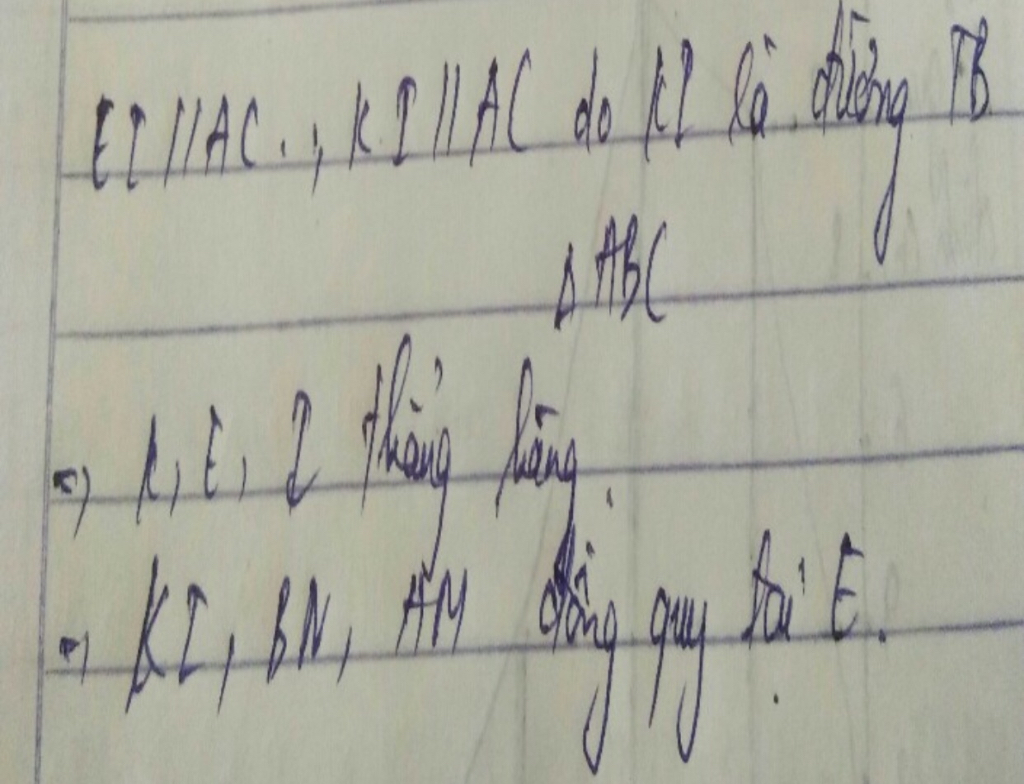 EI // AC . , KI // AC do KI là đường TB
Δ ABC
=> K, E, I thẳng hàng.
=> KI, BN, AM đồng quy tại E.